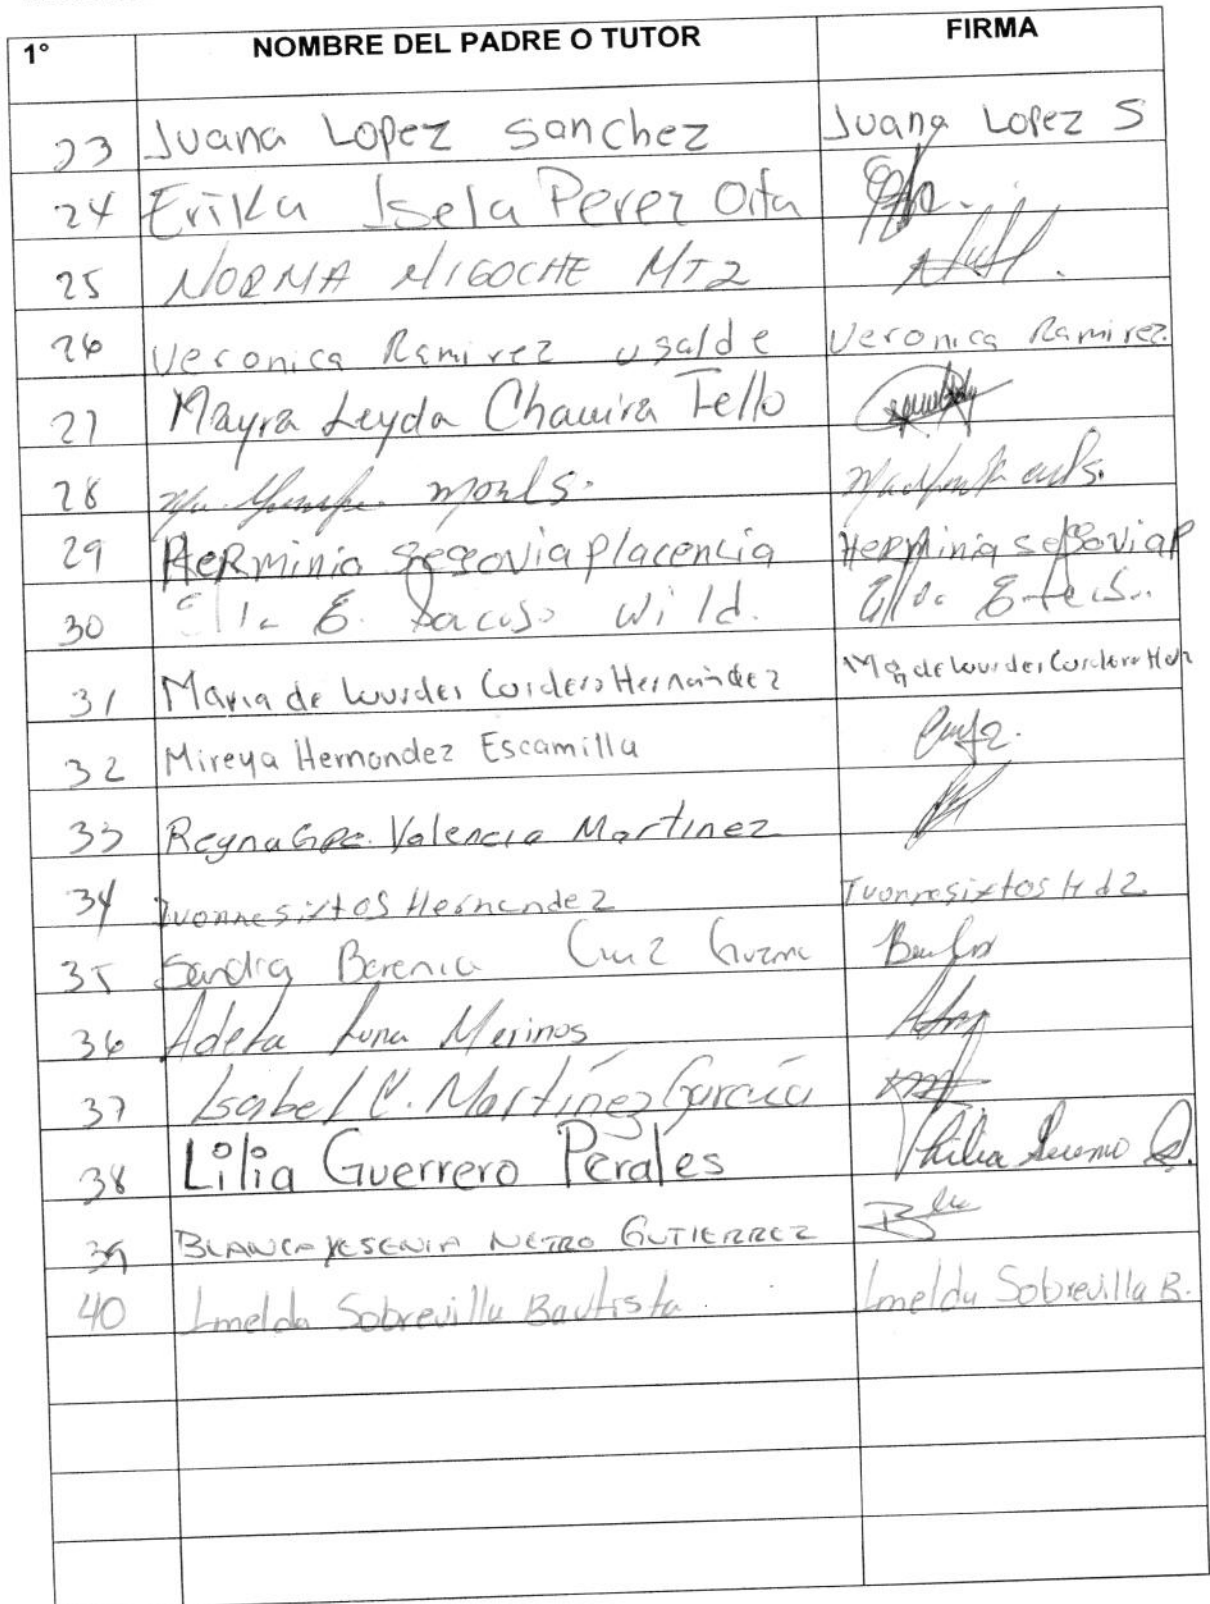 1° NOMBRE DEL PADRE O TUTOR FIRMA
23 Juana Lopez Sanchez Juana Lopez S
24 Erika Isela Perez Orta
25 NORMA MIGOCHE MTZ
26 Veronica Ramirez Ugalde Veronica Ramirez
27 Mayra Leyda Chavira Tello
28
29 Herminia Segovia Placencia Herminia Segovia P
30 E. Wild.
31 Maria de Lourdes Cordero Hernández Ma de Lourdes Cordero Hdz
32 Mireya Hernandez Escamilla
33 Reyna Gpe. Valencia Martinez
34 Ivonne sixtos Hernandez Ivonne sixtos Hdz
35 Sandra Berenice Cruz
36 Adela Luna Merinos
37 Isabel C. Martínez García
38 Lilia Guerrero Perales
39 BLANCA YESENIA NETRO GUTIERREZ
40 Imelda Sobrevilla Bautista. Imelda Sobrevilla B.